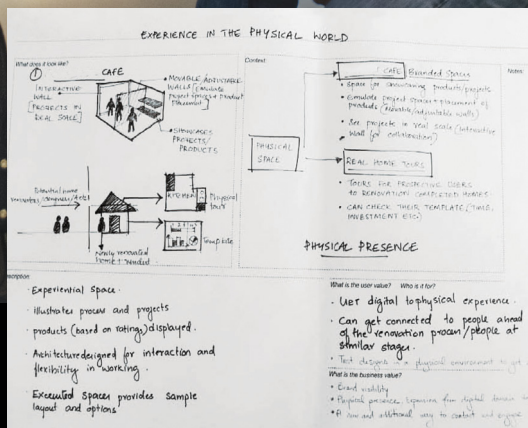 EXPERIENCE IN THE PHYSICAL WORLD
What does it look like?
①
CAFE
INTERACTIVE
WALL
[PROJECTS IN
REAL SCALE]
• MOVABLE/ADJUSTABLE
WALLS [Emulate
project space + product
placement]
• SHOWCASES
PROJECTS/
PRODUCTS
Potential home
renovators/companies/Hotel
KITCHEN
Physical
tour
Template
Newly renovated
Context:
PHYSICAL
SPACE
CAFE Branded Spaces
• Space for showcasing products/projects
• Emulate project spaces + placement of
products (movable/adjustable walls)
• See projects in real scale (interactive
wall for collaboration)
REAL HOME TOURS
• TOURS FOR PROSPECTIVE USERS
TO RENOVATION COMPLETED HOMES
• CAN CHECK THEIR TEMPLATE (TIME,
INVESTMENT ETC.)
PHYSICAL PRESENCE
Notes:
scription:
• Experiential Space.
• Illustrates process and projects
• products (based on ratings) displayed.
• Architecture designed for interaction and
flexibility in working.
• Executed Spaces provides sample
layout and options
What is the user value? Who is it for?
• digital to physical experience.
• Can get connected to people ahead
of the renovation process/people at
similar stages.
• Test designs in a physical environment to get
What is the business value?
• Brand visibility
• Physical presence. Expansion from digital domain
• A new and additional way to contact and engage